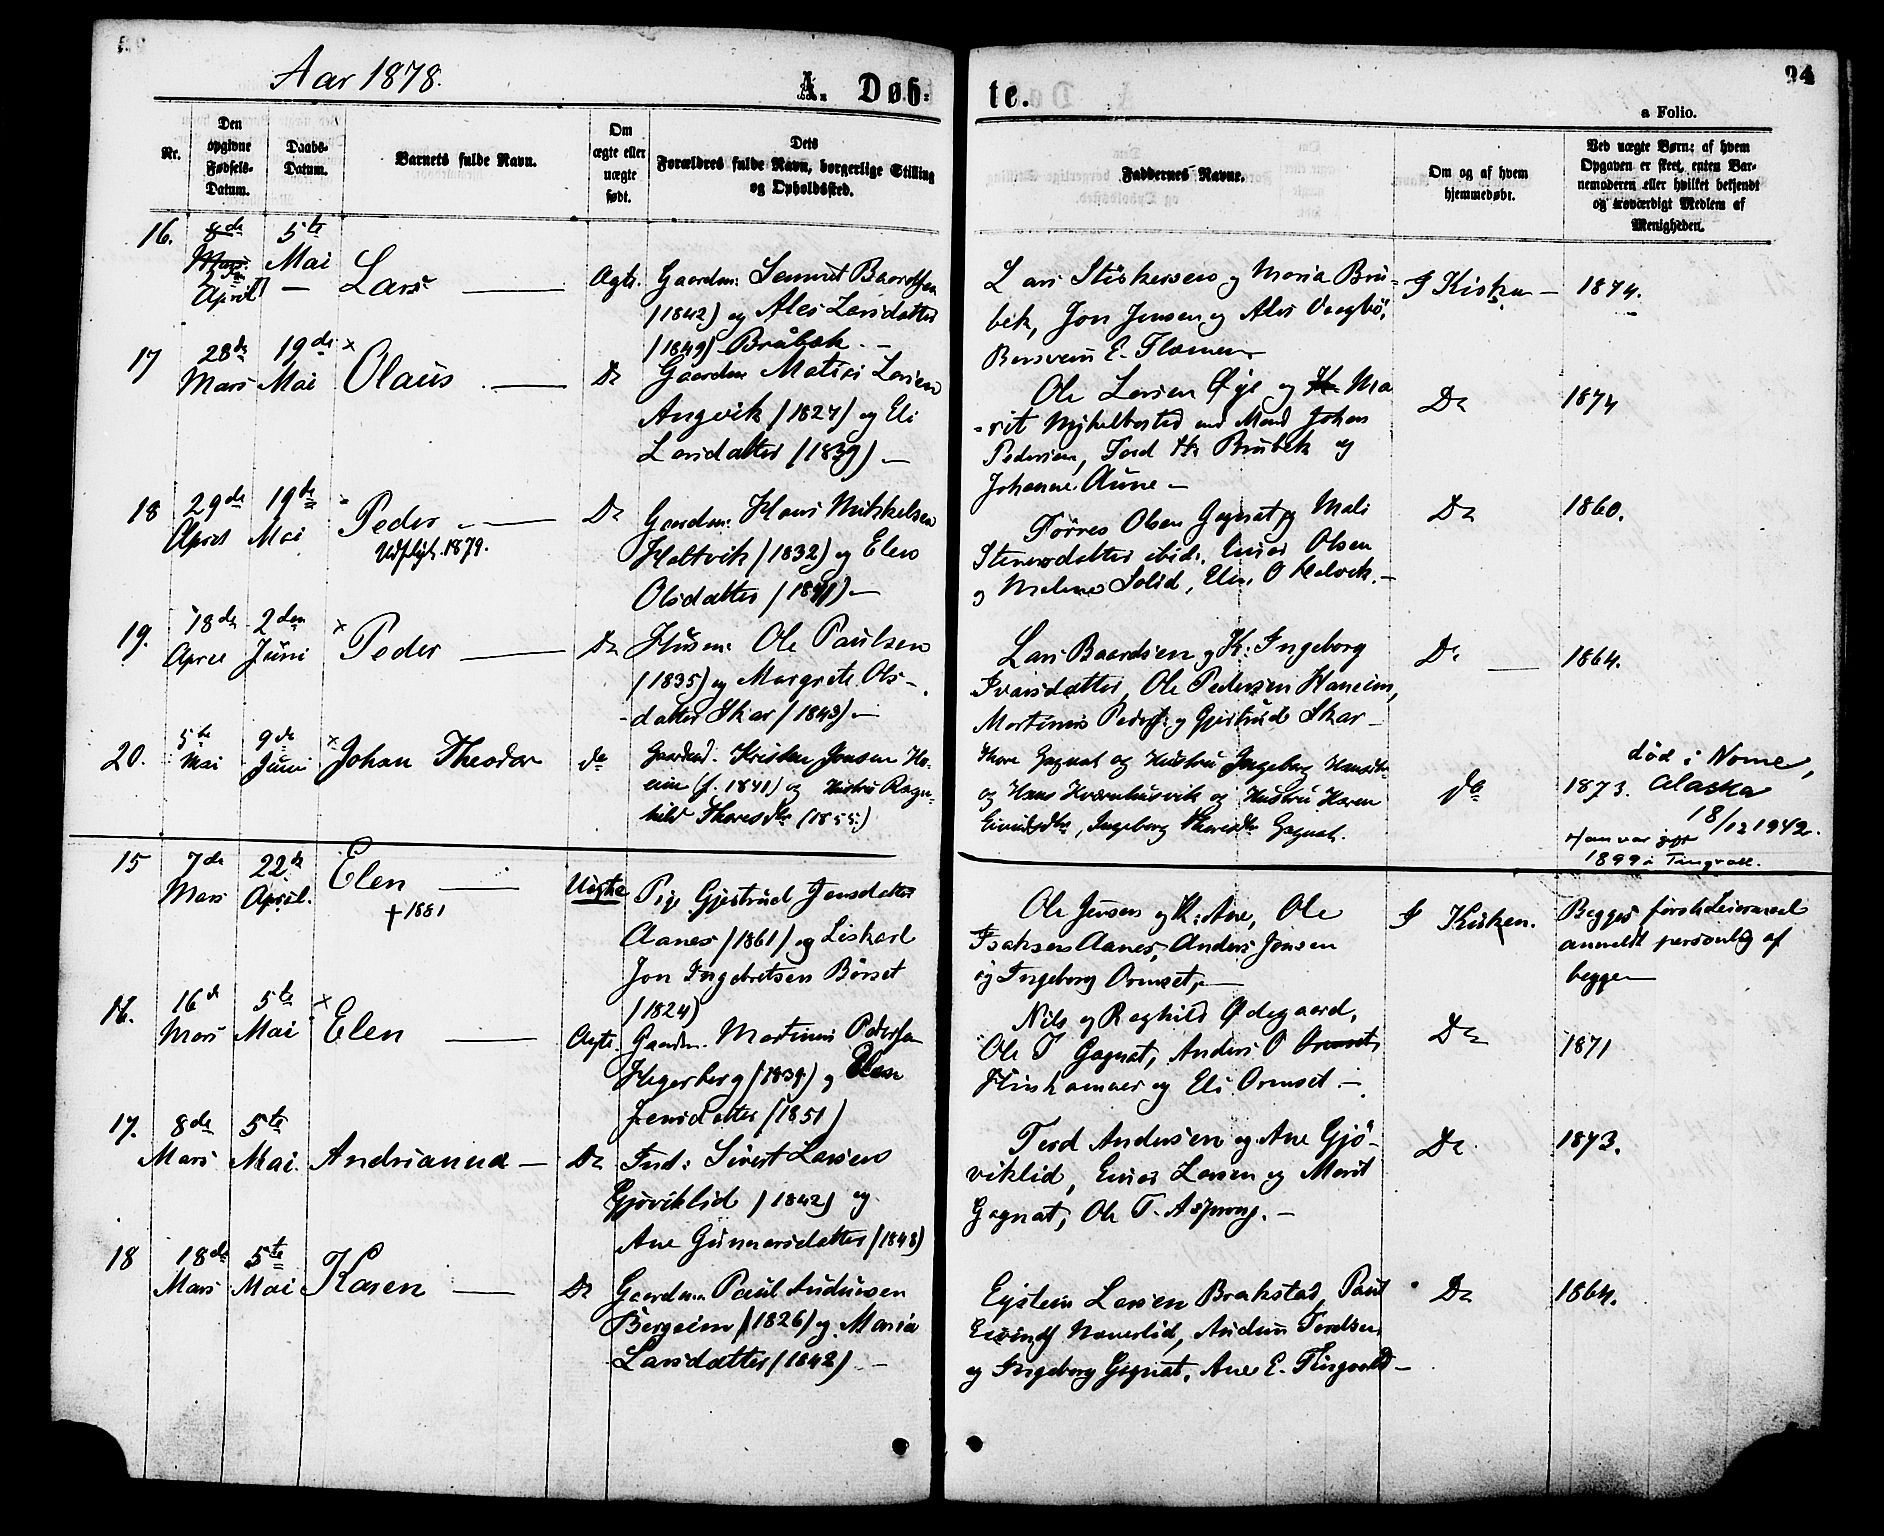 Aar 1878.
A. Døb-
te.
94
a Folio.
Nr.
Den
opgivne
Fødsels-
Datum.
Daabs-
Datum.
Barnets fulde Navn.
Om
ægte eller
uægte
født.
Dets
Forældres fulde Navn, borgerlige Stilling
og Opholdssted.
Faddernes Navne.
Om og af hvem
hjemmedøbt.
Ved uægte Børn: af hvem
Opgaven er skeet, enten Bar-
nemoderen eller hvilket bekjendt
og troværdigt Medlem af
Menigheden.
16.
8de
Mars
April
5te
Mai
Lars
Ægte.
Gaardm:
(1842) og Ales Larsdatter
(1849) Brübæk. -
Lars og Maria Brü-
bek, Jon Jensen og Ales
E.
I Kirken -
1874.
17
28de
Mars
19de
Mai
x
Olaus
Do
Gaardm Larsen
Angvik (1827) og Eli
Larsdatter (1839) -
Ole Larsen Øye og Ma
-rit med Mand Johan
Pedersen, Brübek og
Johanne Aune -
Do
1874
18
29de
April
19de
Mai
Peder
Udflytt. 1879.
Do
Gaardm: Hans Mikkelsen
(1832) og Elen
Olsdatter (1841) -
Olsen Gagnat og Mali
ibid: Olsen
og Solid, Elen O
Do
1860.
19.
18de
April
2den
Juni
x
Peder
Do
Husm: Ole Paulsen
(1835) og Margrete Ols-
-datter Skar (1843) -
Lars Baardsen og K: Ingeborg
Ivarsdatter, Ole Pedersen Haneim,
og Gjertrud Skar -
Do
1864.
20.
5te
Mai
9de
Juni
x
Johan Theodor
do
Gaardmd. Kristen Jonsen Ha-
eim (f. 1841) og Hustru Ragn-
hild Thoresdtr (1855)
Thore Gagnat og Hustru Ingeborg
og Hans og Hustru Karen
Ingeborg Thoresdtr Gagnat.
do
1873.
død i Nome,
Alaska
18/12 1942.
Han var gift
1899 i Tingvoll.
15
7de
Mars
22de
April.
Elen
† 1881
Uægte
Pige Gjertrud Jensdatter
Aanes (1861) og
Jon Ingebretsen Børset
(1824)
Ole Jensen og K: Ane, Ole
Isaksen Aanes, Anders Jonsen
og Ingeborg Ormset, -
I Kirken.
Begges første Leiermaal
anmeldt personlig af
begge
16.
16de
Mars
5te
Mai
x
Elen
Ægte.
Gaardm. Martinus Pedersen
Hegerberg (1839) og Elen
Jensdatter (1851)
Nils og Raghild Ødegaard,
Ole T Gagnat, Anders O Ormset,
og Eli Ormset -
Do
1871
17.
8de
Mars
5te
Mai.
Andrianna
Do
Ind: Sivert Larsen
Gjøviklid (1842) og
Ane Gunnarsdatter (1848)
Tord Andersen og Ane Gjö-
viklid, Larsen og Marit
Gagnat, Ole T. Asprong. -
Do
1873.
18
18de
Mars
5te
Mai
Karen
Do
Gaardm Paul Andersen
Bergeim (1826) og Maria
Larsdatter (1842) -
Eystein Larsen Brakstad, Paul
Naverlid, Tordsen
og Ingeborg Gagnat, Ane E. Tingvold -
Do
1864.